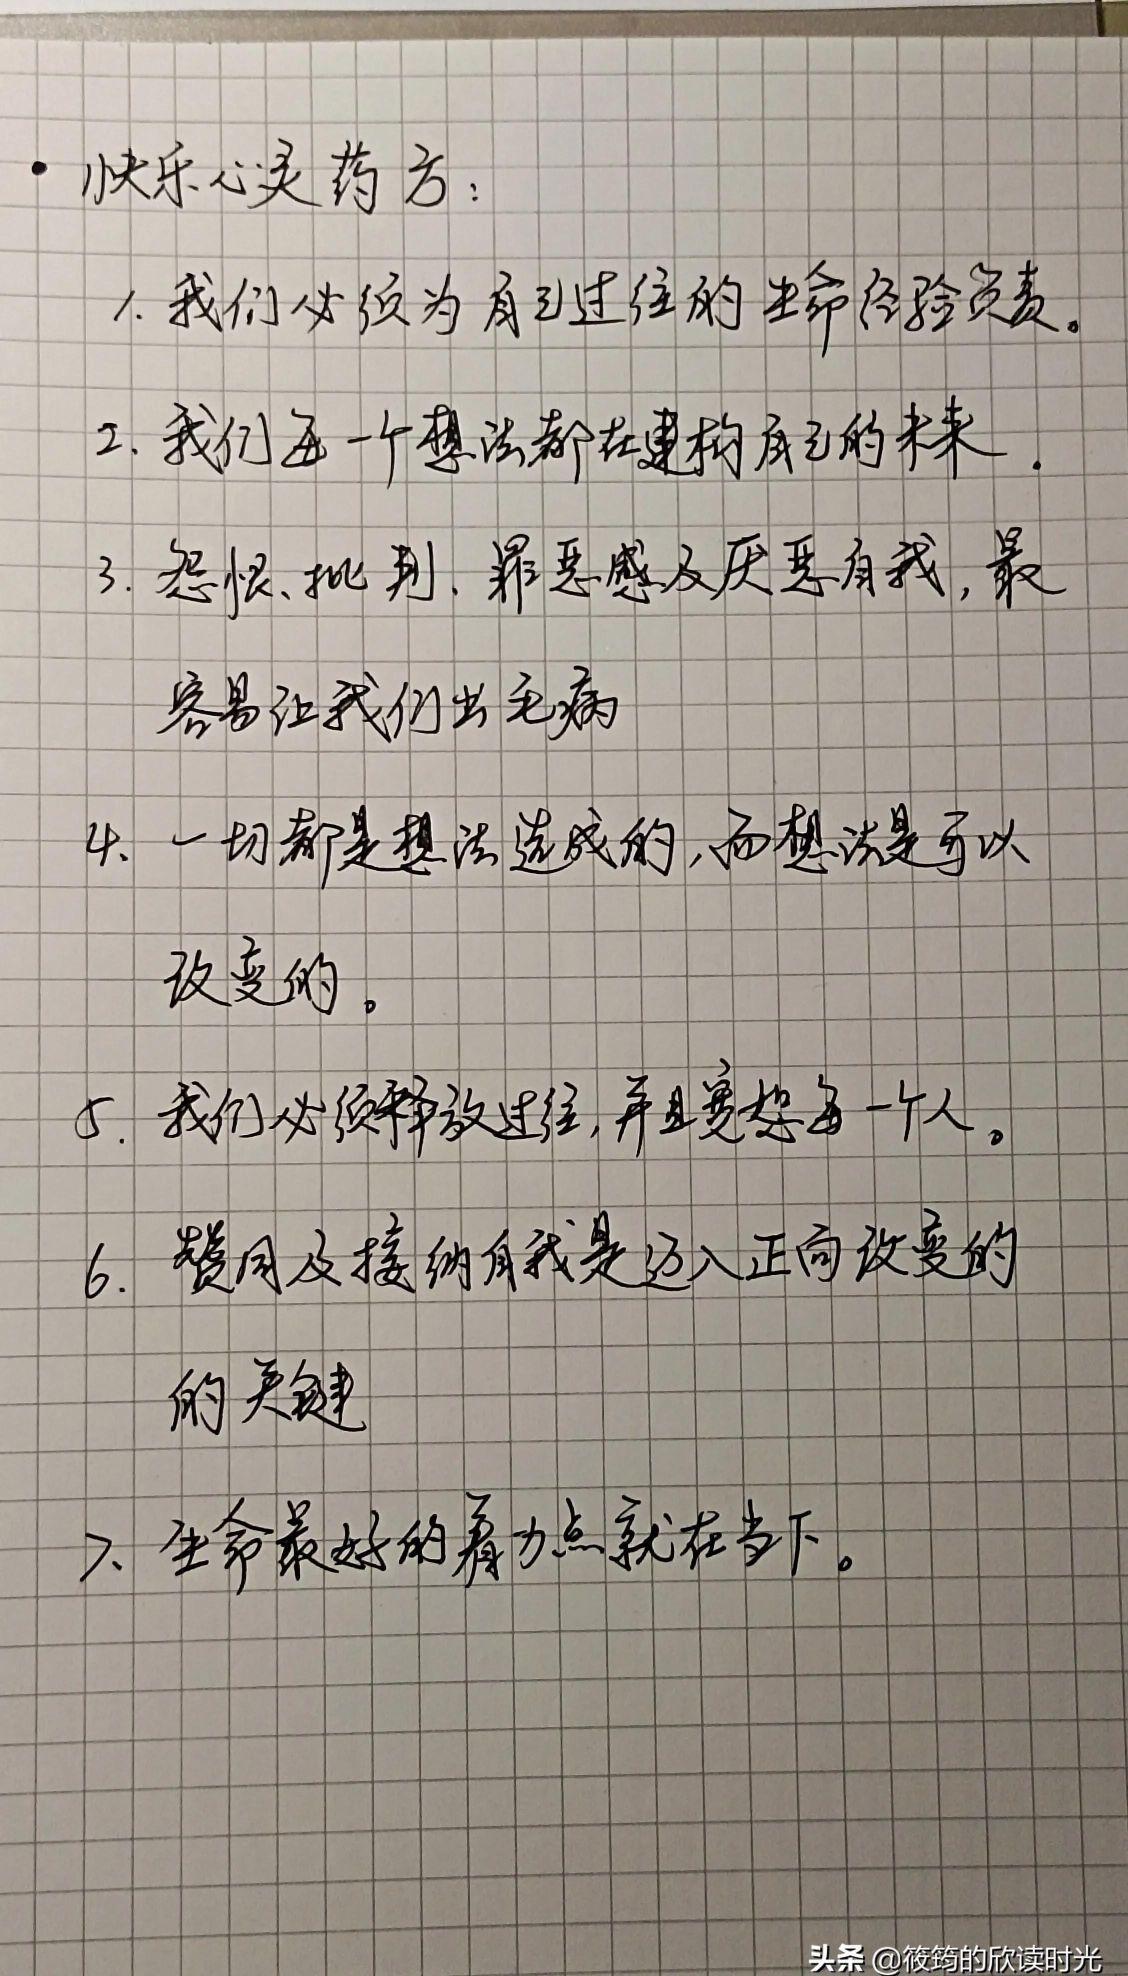 • 快乐心灵药方：
1. 我们必须为自己过往的生命经验负责。
2. 我们每一个想法都在建构自己的未来.
3. 怨恨、批判、罪恶感及厌恶自我,最
容易让我们出毛病
4、一切都是想法造成的,而想法是可以
改变的。
5. 我们必须释放过往,并且宽恕每一个人。
6. 赞同及接纳自我是迈入正向改变的
的关键
7、生命最好的着力点就在当下。
头条 @筱筠的欣读时光